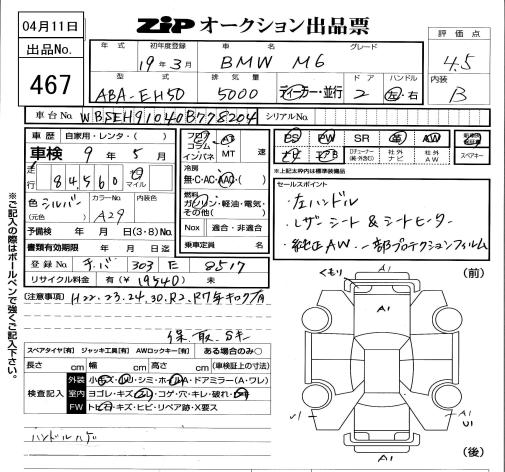 04月11日
ZIP オークション出品票
出品No.
467
年式 初年度登録 車名 グレード
19年3月 BMW M6
評価点
4.5
型式 排気量 ドア ハンドル
ABA-EH50 5000 ディーラー・並行 2 左・右
内装
B
車台No. WBSEH91040B778204 シリアルNo.
車歴 自家用・レンタ・( )
車検 9年5月
走行 84,560 km マイル
色 シルバー カラーNo. 内装色
(元色) A29
予備検 年 月 日(3・8)No.
書類有効期限 年 月 日迄
登録No. チバ 303 E 8517
リサイクル料金 有(¥19540)未
フロア コラム インパネ AT MT 速
冷房
無・C・AC・AAC・( )
燃料
ガソリン・軽油・電気・その他( )
Nox 適合・非適合
乗車定員 名
PS PW SR 革 AW
ナビ エアB 社外ナビ 社外AW スペアキー
※上記太枠内は標準装備品
セールスポイント
・左ハンドル
・レザーシート&シートヒーター
・純正AW.・一部プロテクションフィルム
(注意事項) H22.23.24.30.R2.R7年キロク有
保.取.Sキー
スペアタイヤ[有] ジャッキ工具[有] AWロックキー[有] ある場合のみ○
長さ cm 幅 cm 高さ cm (車検証上の寸法)
検査記入
外装 小キズ・小凹・シミ・ホイールA・ドアミラー(A・ワレ)
室内 ヨゴレ・キズ・スレ・コゲ・穴・キレ・破れ・
FW トビ石・キズ・ヒビ・リペア跡・X要ス
ハンドルハゲ
※ご記入の際はボールペンで強くご記入下さい。
(前)
くもり
A1
A1
A1
A1
U1
A1
(後)